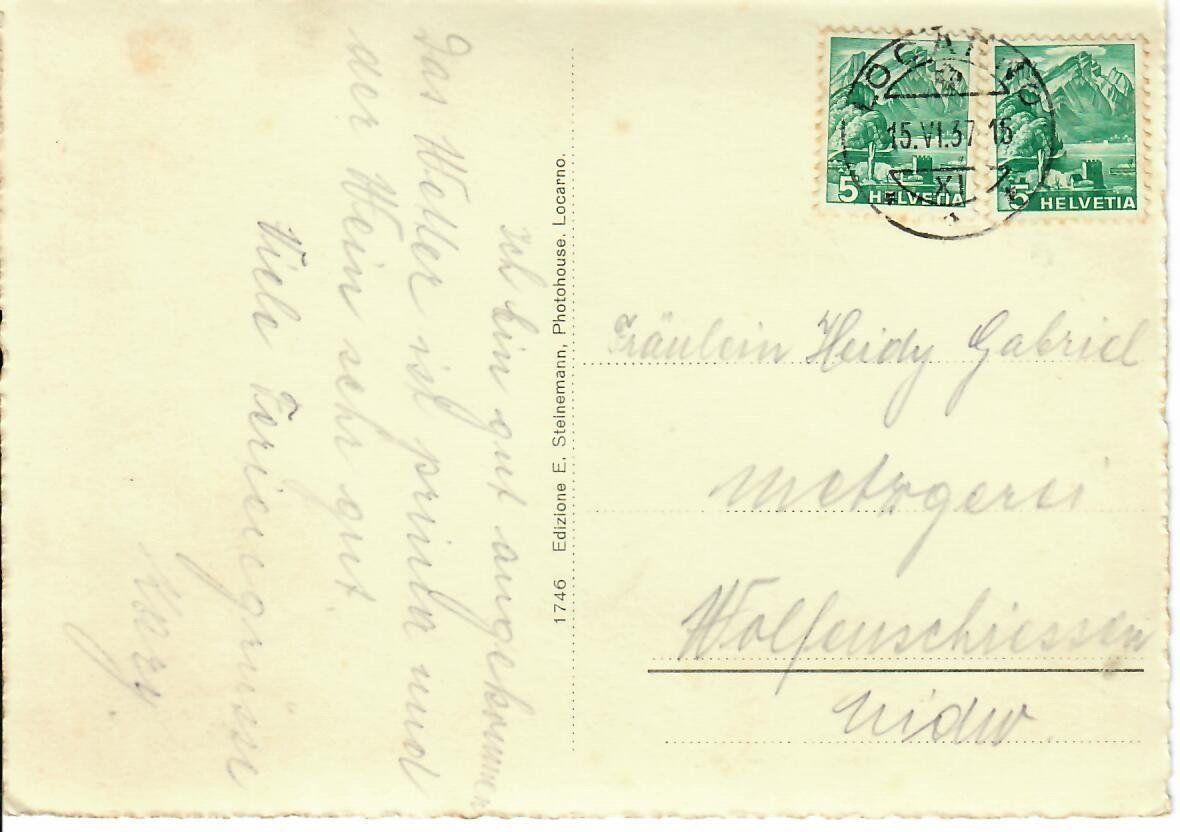 Ich bin gut angekommen
Das Wetter ist prima und
der Wein sehr gut
Viele Feriengrüsse
1746 Edizione E. Steinemann, Photohouse, Locarno.
LOCARNO
15.VI.37 15
XI
1
5 HELVETIA
5 HELVETIA
Fräulein Heidy Gabriel
Metzgerei
Wolfenschiessen
Nidw.